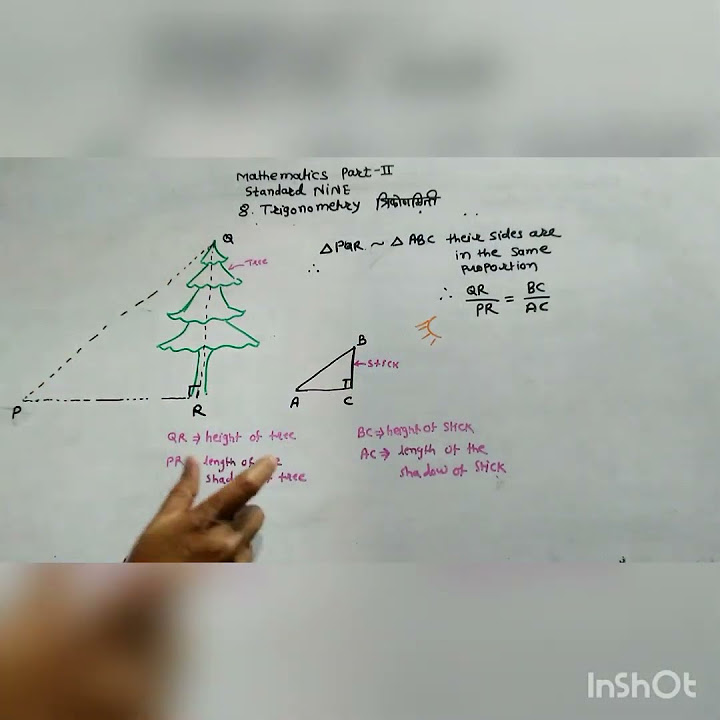 Mathematics Part-II
Standard NiNE
8. Trigonometry त्रिकोणमिती
Q
Tree
P
R
∴
△PQR ~ △ABC their sides are
in the same
proportion
∴ QR/PR = BC/AC
B
Stick
A
C
QR ⇒ height of tree
PR length of
shad tree
BC ⇒ height of Stick
AC ⇒ length of the
shadow of Stick
InShOt